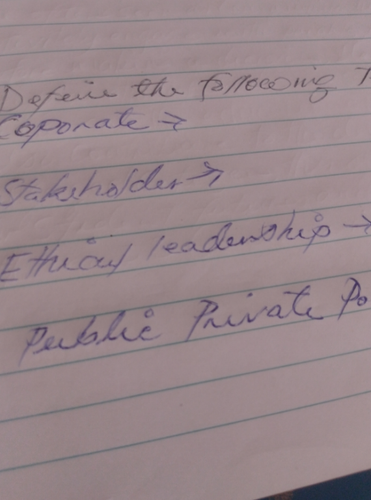 Define the following T
Coporate →
Stakesholder →
Ethical leadership →
Public Private Pa